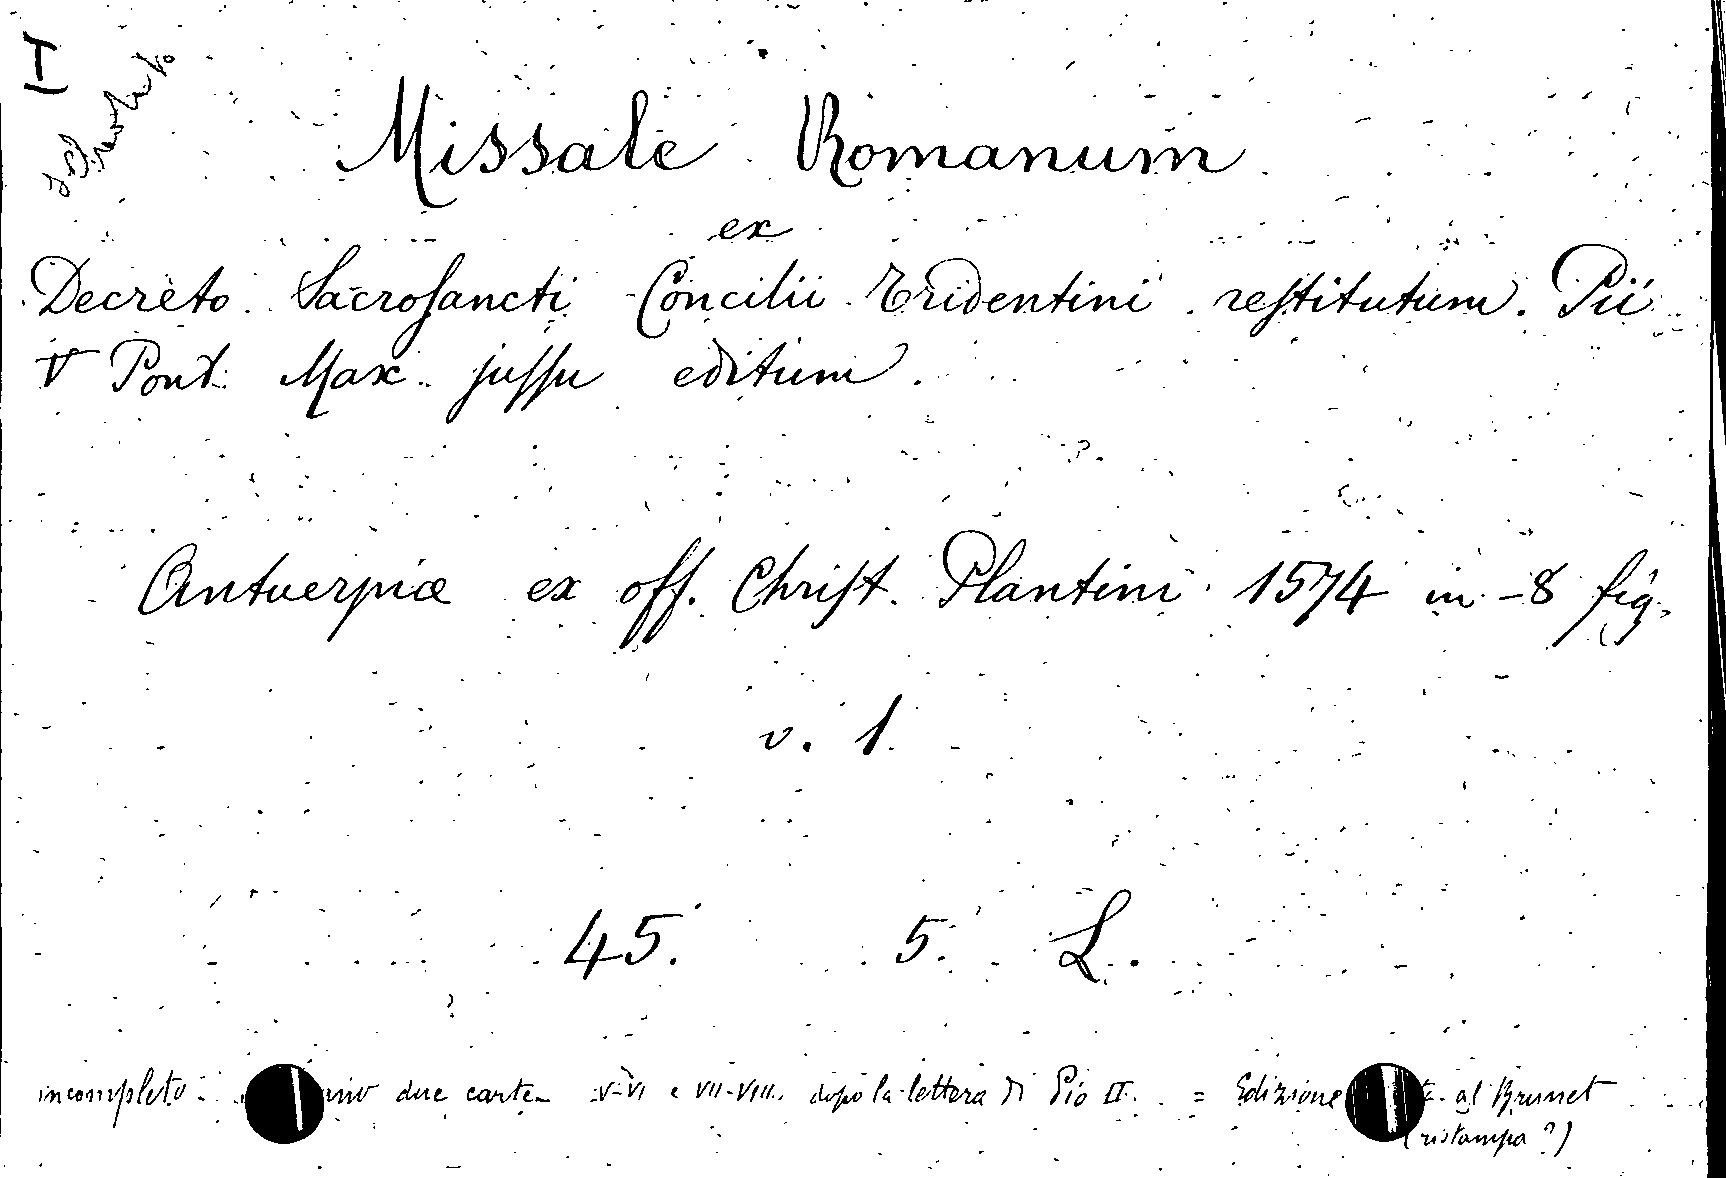 I
Missale Romanum
ex
Decreto Sacrosancti Concilii Tridentini restitutum. Pii
V Pont. Max. jussu editum.
Antuerpiæ ex off. Christ. Plantini 1574 in-8 fig.
v. 1.
45. 5. L.
incompleto due carte V-VI e VII-VIII. dopo la lettera di Pio II. = Edizione al Brunet
(ristampa?)